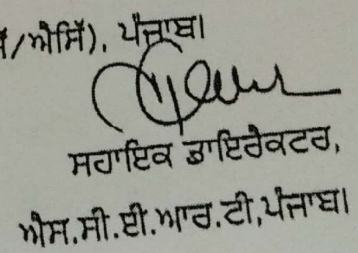 /ਐਸਿੱ), ਪੰਜਾਬ।
ਸਹਾਇਕ ਡਾਇਰੈਕਟਰ,
ਐਸ.ਸੀ.ਈ.ਆਰ.ਟੀ,ਪੰਜਾਬ।